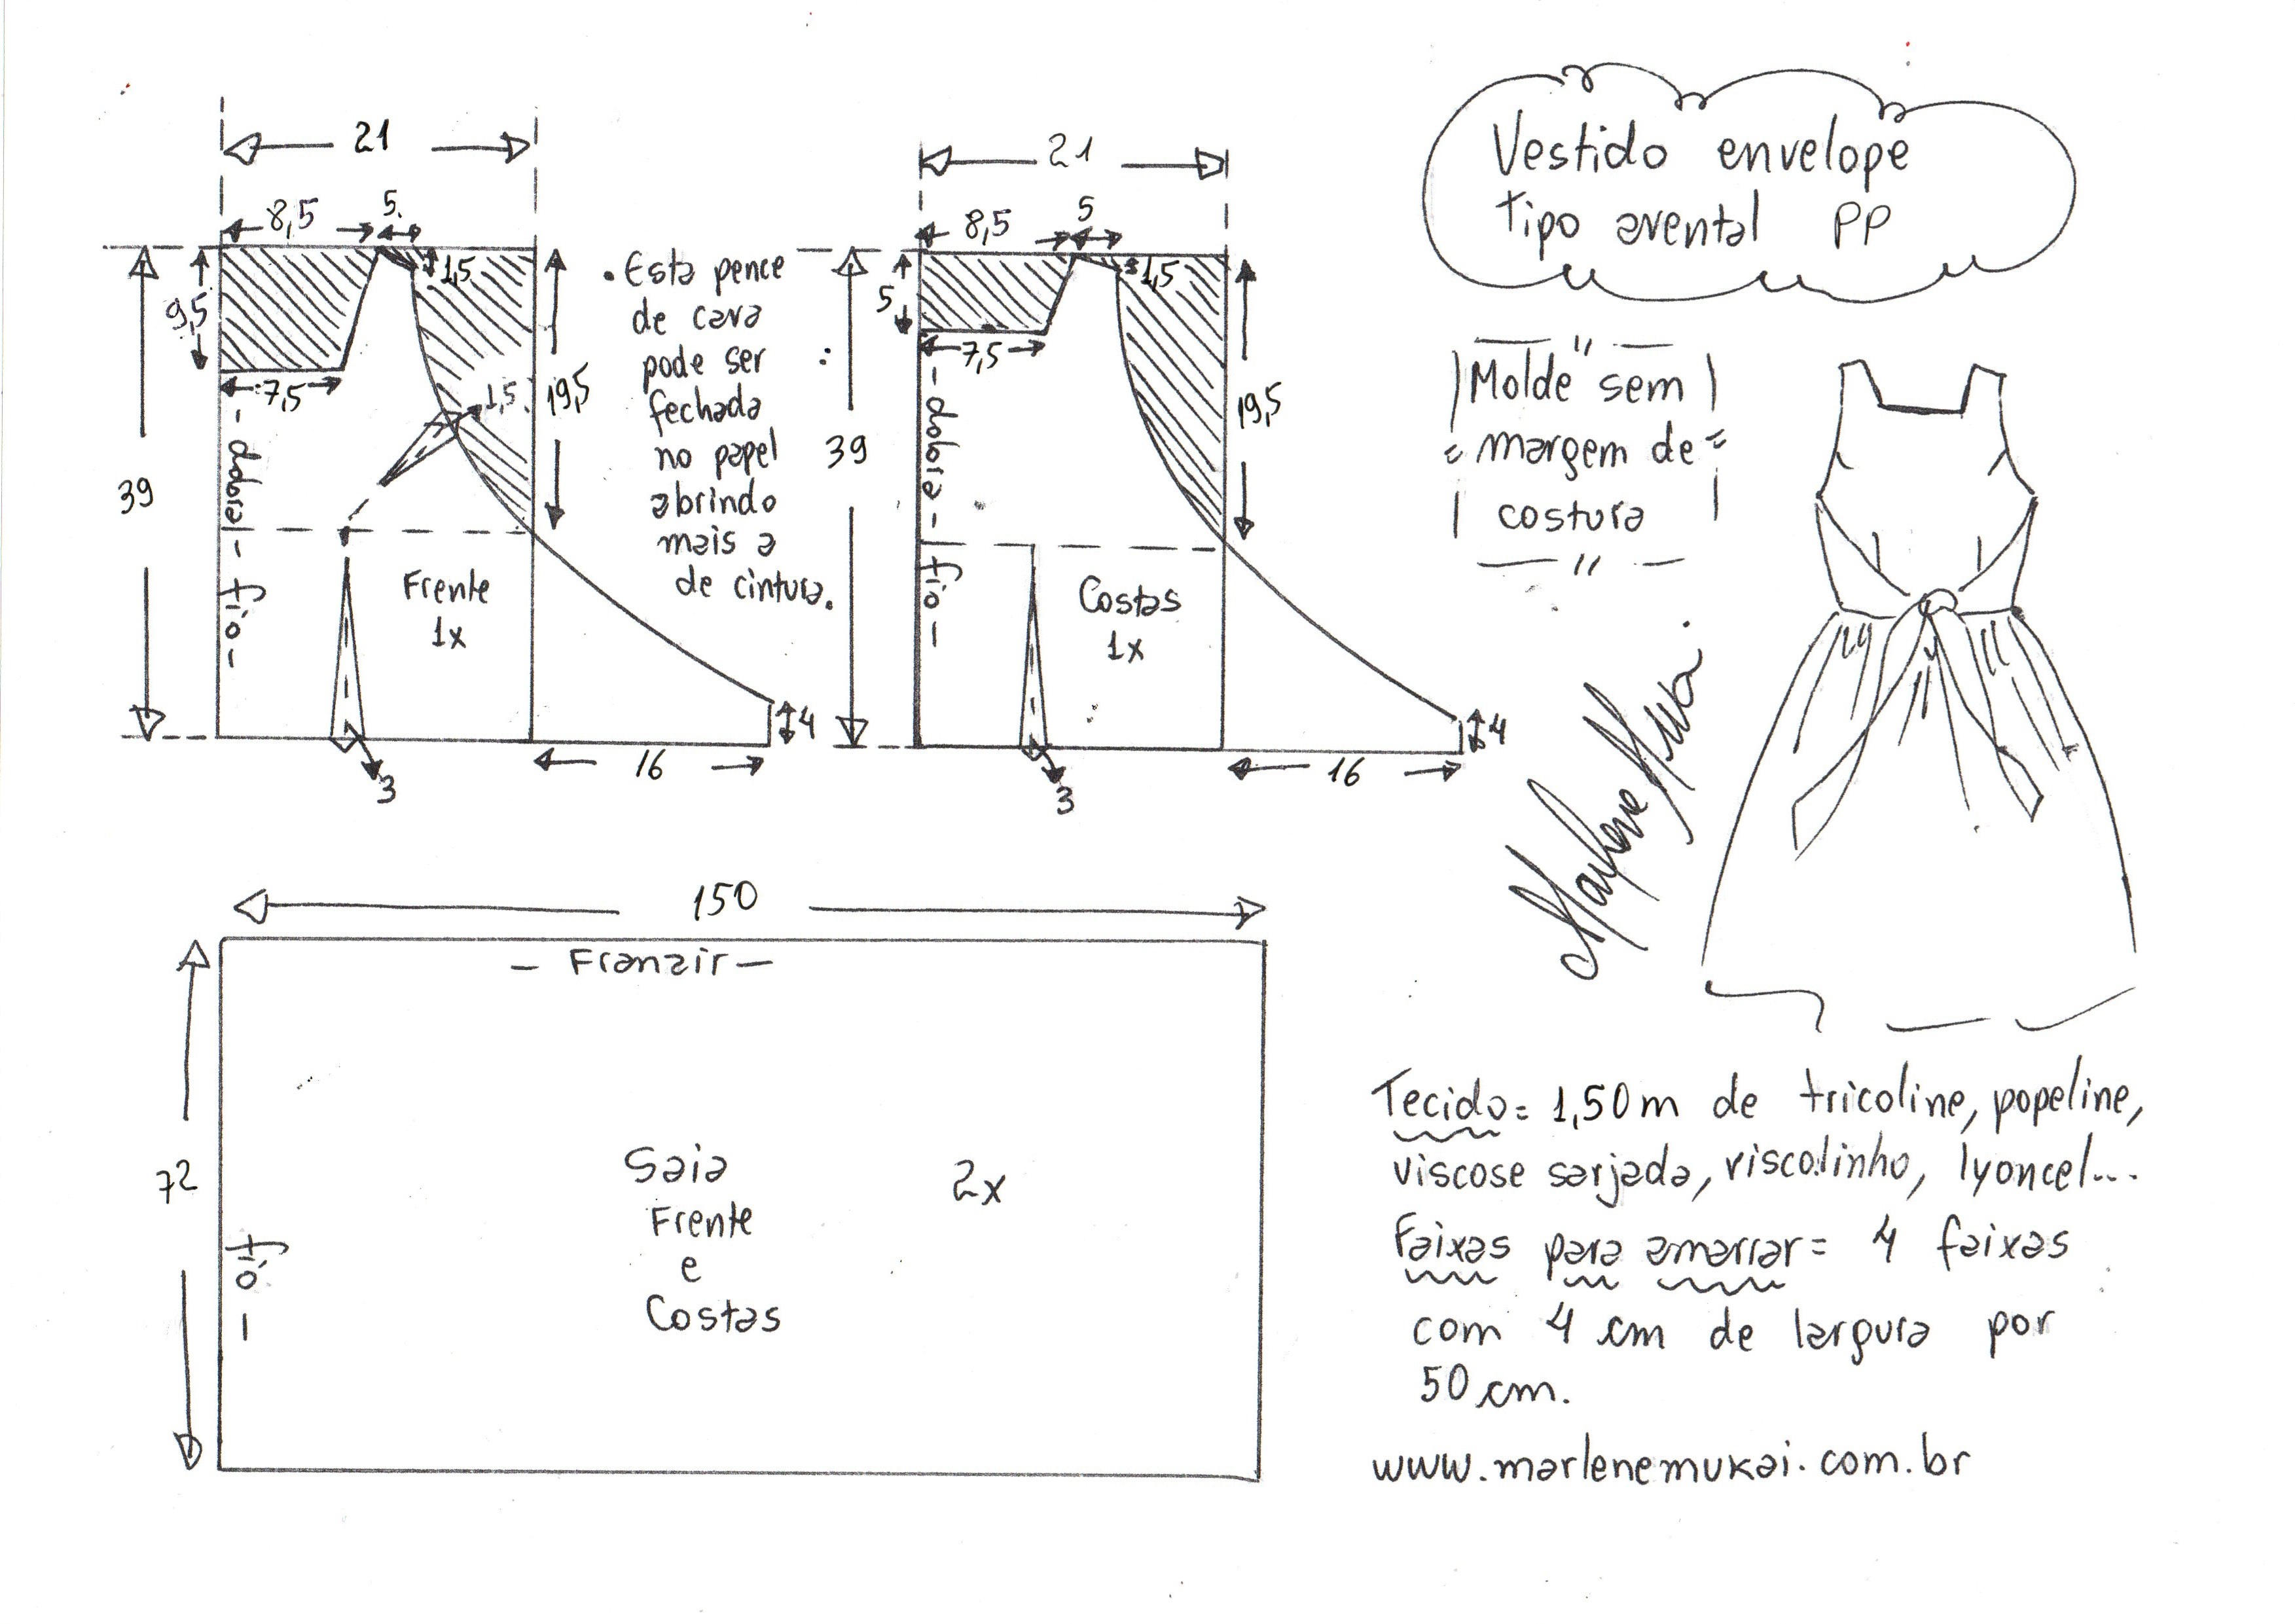 21
8,5
5
9,5
1,5
7,5
1,5
19,5
39
- dobra - fio -
Frente
1x
3
16
4
. Esta pence
de cava
pode ser
fechada
no papel
abrindo
mais a
de cintura.
21
8,5
5
5
1,5
7,5
19,5
39
- dobra - fio -
Costas
1x
3
16
4
Vestido envelope
tipo avental PP
Molde sem
margem de
costura
150
- Franzir -
72
fio -
Saia 2x
Frente
e
Costas
Tecido = 1,50m de tricoline, popeline,
viscose sarjada, viscolinho, lyoncel...
Faixas para amarrar = 4 faixas
com 4 cm de largura por
50 cm.
www.marlenemukai.com.br